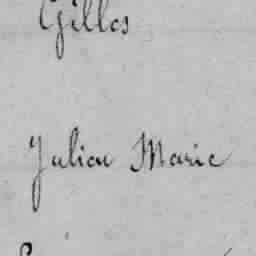 Gilles
Julien Marie